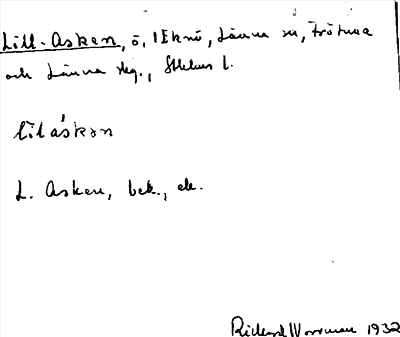 Lill-Asken, ö, i Eknö, Länna sn, Frötuna
och Länna skg., Sthlms l.
lilás̀kən
L. Asken, bek., ek.
Rickard Wornman 1932